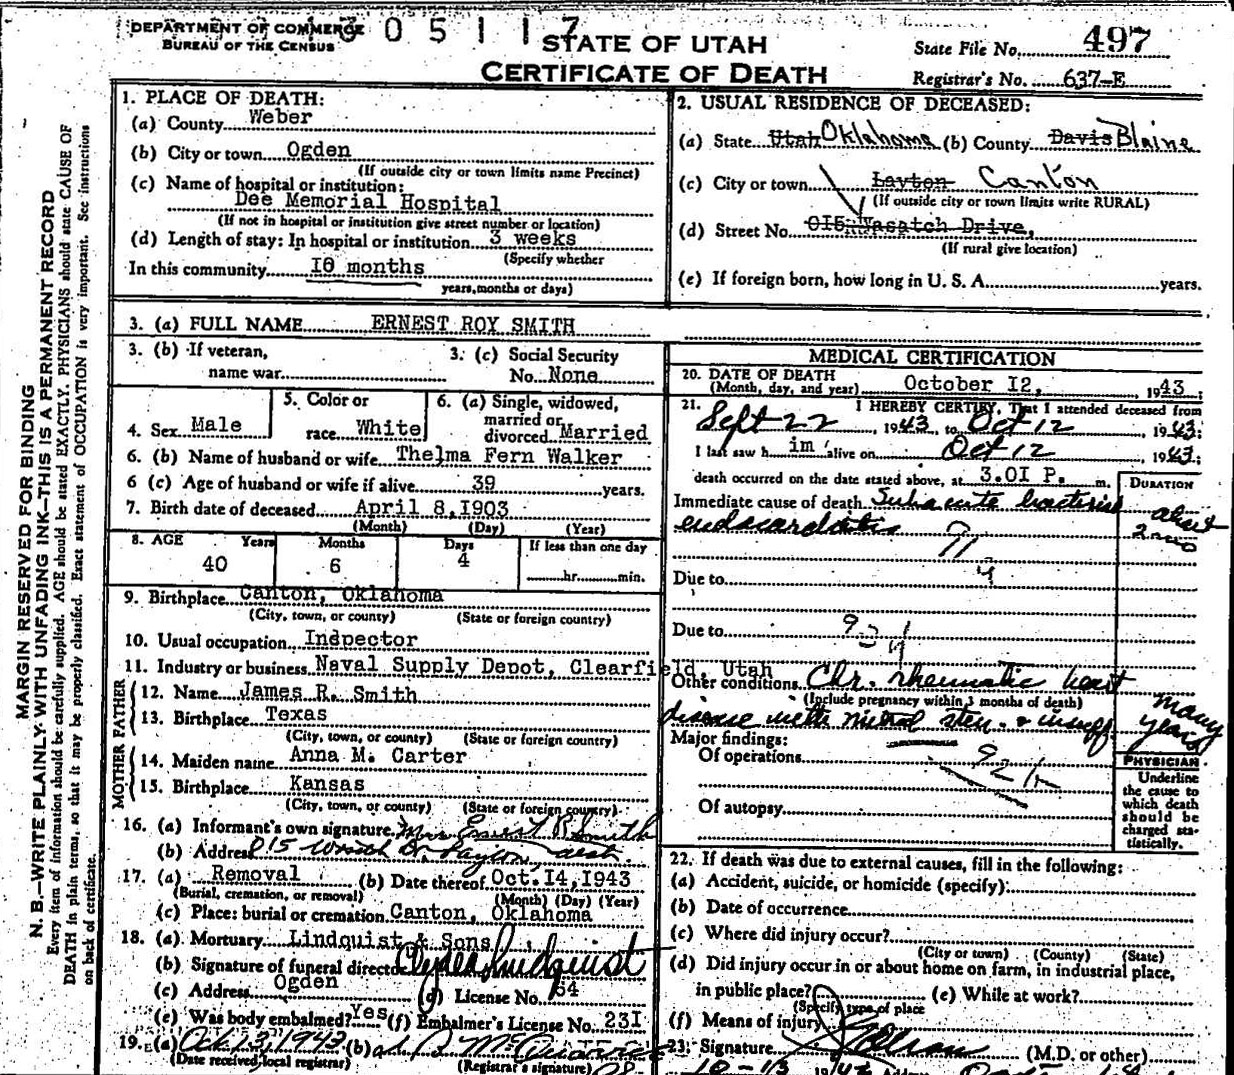 DEPARTMENT OF COMMERCE
BUREAU OF THE CENSUS
305117
STATE OF UTAH
CERTIFICATE OF DEATH
State File No. 497
Registrar's No. 637-E
MARGIN RESERVED FOR BINDING
N. B.—WRITE PLAINLY WITH UNFADING INK—THIS IS A PERMANENT RECORD
Every item of information should be carefully supplied. AGE should be stated EXACTLY. PHYSICIANS should state CAUSE OF
DEATH in plain terms, so that it may be properly classified. Exact statement of OCCUPATION is very important. See instructions
on back of certificate.
1. PLACE OF DEATH:
(a) County Weber
(b) City or town Ogden
(If outside city or town limits name Precinct)
(c) Name of hospital or institution:
Dee Memorial Hospital
(If not in hospital or institution give street number or location)
(d) Length of stay: In hospital or institution 3 weeks
(Specify whether
In this community 10 months
years, months or days)
2. USUAL RESIDENCE OF DECEASED:
(a) State Utah Oklahoma (b) County Davis Blaine
(c) City or town Layton Canton
(If outside city or town limits write RURAL)
(d) Street No. 015 Wasatch Drive,
(If rural give location)
(e) If foreign born, how long in U. S. A. years.
3. (a) FULL NAME ERNEST ROY SMITH
3. (b) If veteran,
name war
3. (c) Social Security
No. None
4. Sex Male
5. Color or
race White
6. (a) Single, widowed,
married or
divorced Married
6. (b) Name of husband or wife Thelma Fern Walker
6 (c) Age of husband or wife if alive 39 years.
7. Birth date of deceased April 8, 1903
(Month) (Day) (Year)
8. AGE Years Months Days If less than one day
40 6 4 hr. min.
9. Birthplace Canton, Oklahoma
(City, town, or county) (State or foreign country)
10. Usual occupation Inspector
11. Industry or business Naval Supply Depot, Clearfield, Utah
FATHER
12. Name James R. Smith
13. Birthplace Texas
(City, town, or county) (State or foreign country)
MOTHER
14. Maiden name Anna M. Carter
15. Birthplace Kansas
(City, town, or county) (State or foreign country)
16. (a) Informant's own signature Mrs Ernest R Smith
(b) Address 815
17. (a) Removal (b) Date thereof Oct. 14, 1943
(Burial, cremation, or removal) (Month) (Day) (Year)
(c) Place: burial or cremation Canton, Oklahoma
18. (a) Mortuary Lindquist & Sons
(b) Signature of funeral director Clyde Lindquist
(c) Address Ogden (d) License No. 64
(e) Was body embalmed? Yes (f) Embalmer's License No. 231
19. (a) Oct 13, 1943 (b)
(Date received local registrar) (Registrar's signature)
MEDICAL CERTIFICATION
20. DATE OF DEATH
(Month, day, and year) October 12, 1943
21. I HEREBY CERTIFY, That I attended deceased from
Sept 22, 1943, to Oct 12, 1943;
I last saw h im alive on Oct 12, 1943;
death occurred on the date stated above, at 3.01 P. m.
DURATION
Immediate cause of death Subacute bacterial about
endocarditis 2 mo
Due to
Due to
Other conditions Chr. rheumatic heart
(Include pregnancy within 3 months of death)
disease with mitral sten. & insuff. many years
Major findings:
Of operations 92
Of autopsy
PHYSICIAN
Underline
the cause to
which death
should be
charged sta-
tistically.
22. If death was due to external causes, fill in the following:
(a) Accident, suicide, or homicide (specify):
(b) Date of occurrence
(c) Where did injury occur?
(City or town) (County) (State)
(d) Did injury occur in or about home on farm, in industrial place,
in public place? (e) While at work?
(Specify type of place
(f) Means of injury
23. Signature (M.D. or other)
10-13 19 Address